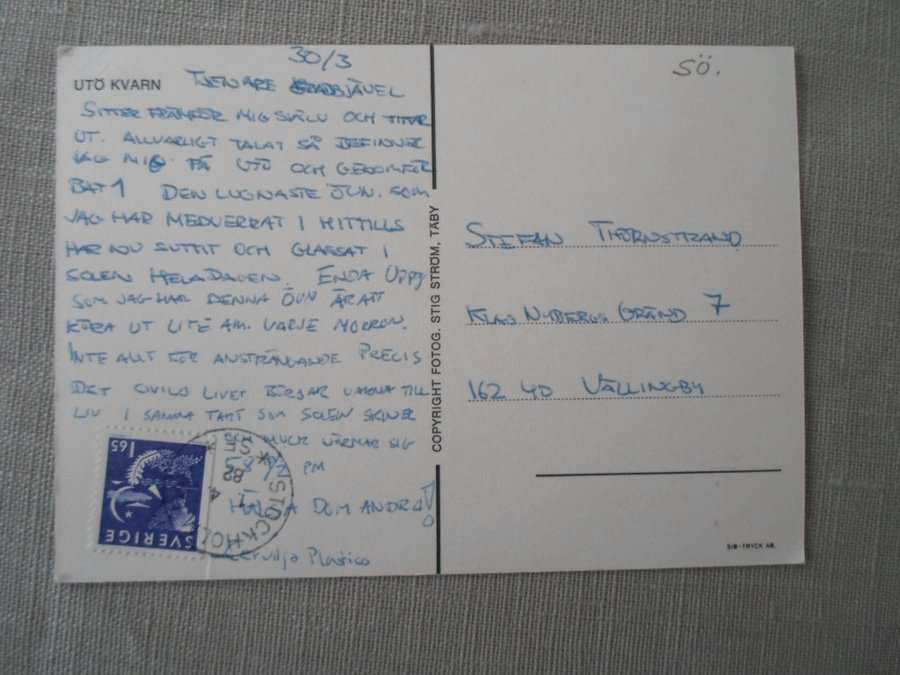 30/3
UTÖ KVARN
TJENARE GRABBJÄVEL
SITTER FRAMFÖR MIG SJÄLV OCH TITTAR
UT. ALLVARLIGT TALAT SÅ BEFINNER
JAG MIG PÅ UTÖ OCH GENOMFÖR
BAT 1 DEN LUGNASTE ÖVN. SOM
JAG HAR MEDVERKAT I HITTILLS
HAR NU SUTTIT OCH GLASSAT I
SOLEN HELA DAGEN. ENDA UPPG
SOM JAG HAR DENNA ÖVN ÄR ATT
KÖRA UT LITE AM. VARJE MORRON.
INTE ALLT FÖR ANSTRÄNGANDE PRECIS
DET CIVILA LIVET BÖRJAR VAKNA TILL
LIV I SAMMA TAKT SOM SOLEN SKINER
OCH MUCK NÄRMAR SIG
PM
HÄLSA DOM ANDRA!
Plastico
SVERIGE
165
STOCKHOL
82
COPYRIGHT FOTOG. STIG STRÖM, TÄBY
SÖ.
STEFAN THÖRNSTRAND
KLAS NYBERGS GRÄND 7
162 40 VÄLLINGBY
SIB-TRYCK AB.